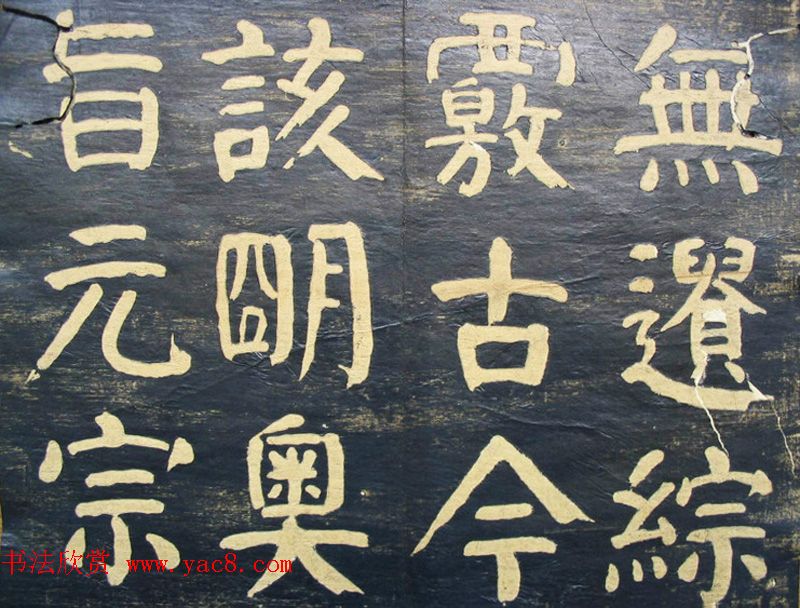 無遺綜
覈古今
該朙奧
旨元宗
书法欣赏 www.yac8.com